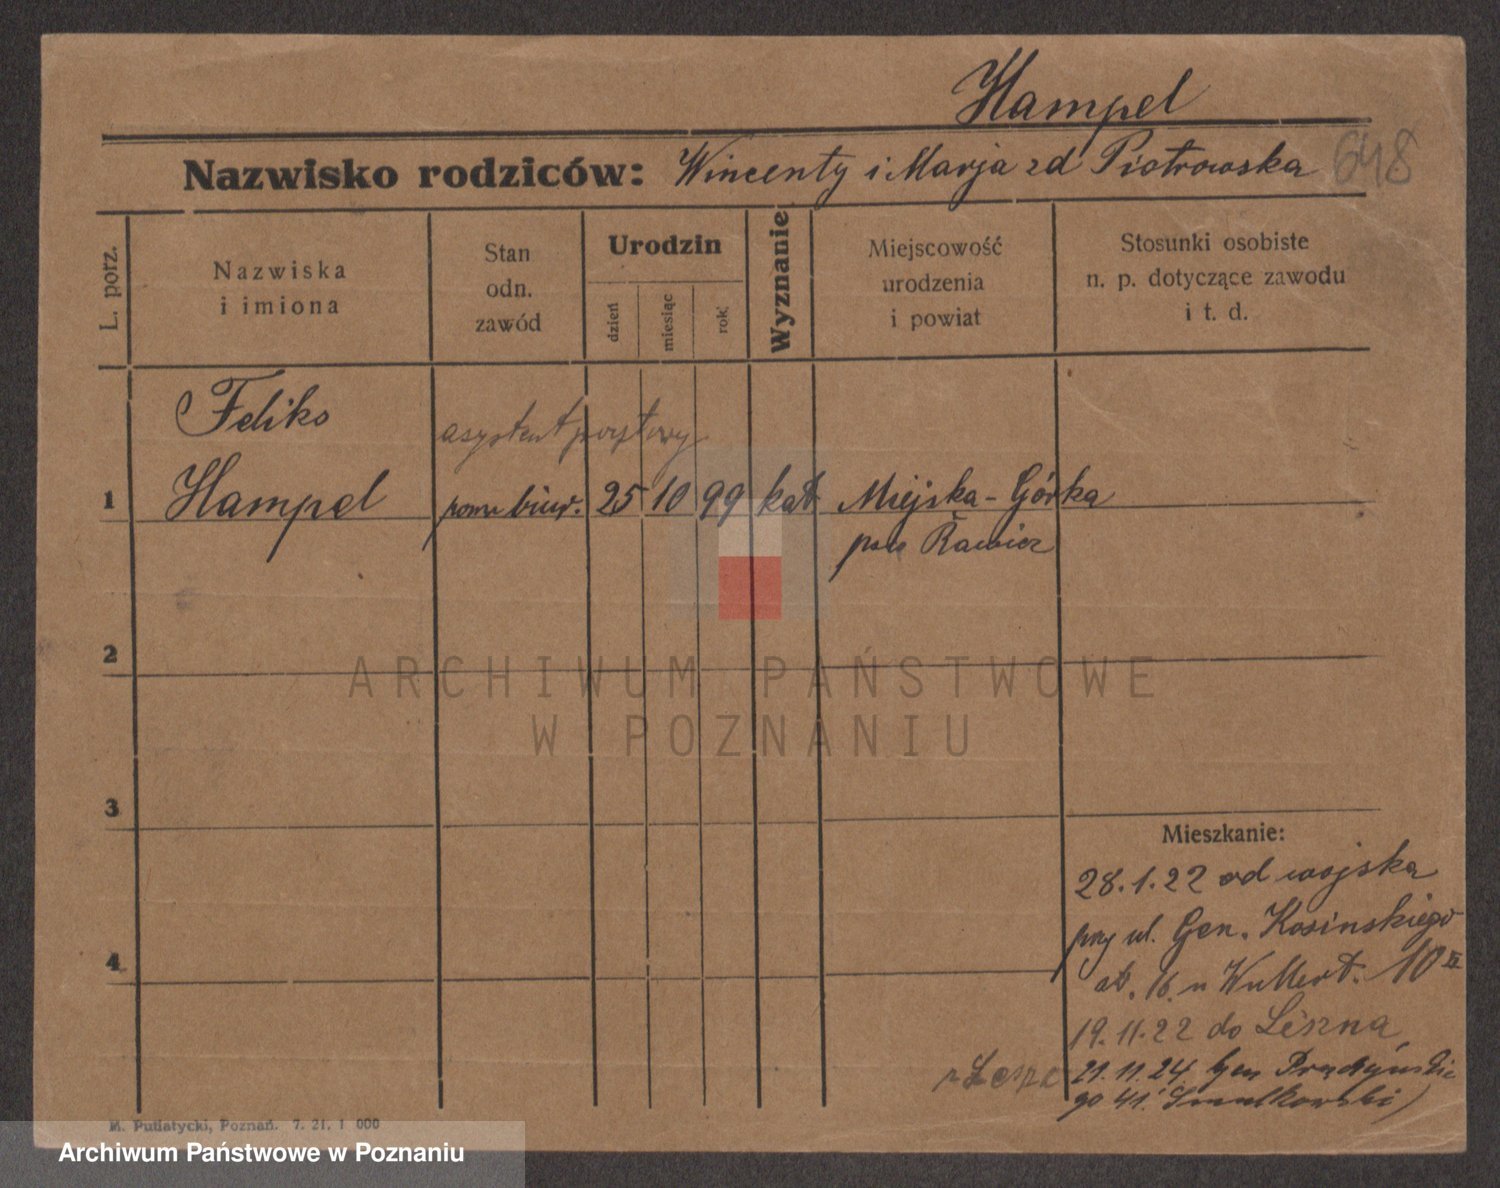 Hampel
Nazwisko rodziców: Wincenty i Marja zd Piotrowska 648
L. porz.
Nazwiska
i imiona
Stan
odn.
zawód
Urodzin
dzień
miesiąc
rok
Wyznanie
Miejscowość
urodzenia
i powiat
Stosunki osobiste
n. p. dotyczące zawodu
i t. d.
Feliks
asystent pocztowy
1 Hampel pom biur. 25 10 99 kat Miejska-Górka
pow Rawicz
2
3
4
Mieszkanie:
28.1.22 od wojska
przy ul. Gen. Kosinskiego
16 u 10 II
19.11.22 do Leszna
z Leszna
21.11.24 Gen Prądzyńskie
go 41 Smulkowski
M. Putiatycki, Poznań. 7. 21. 1 000
ARCHIWUM PAŃSTWOWE
W POZNANIU
Archiwum Państwowe w Poznaniu